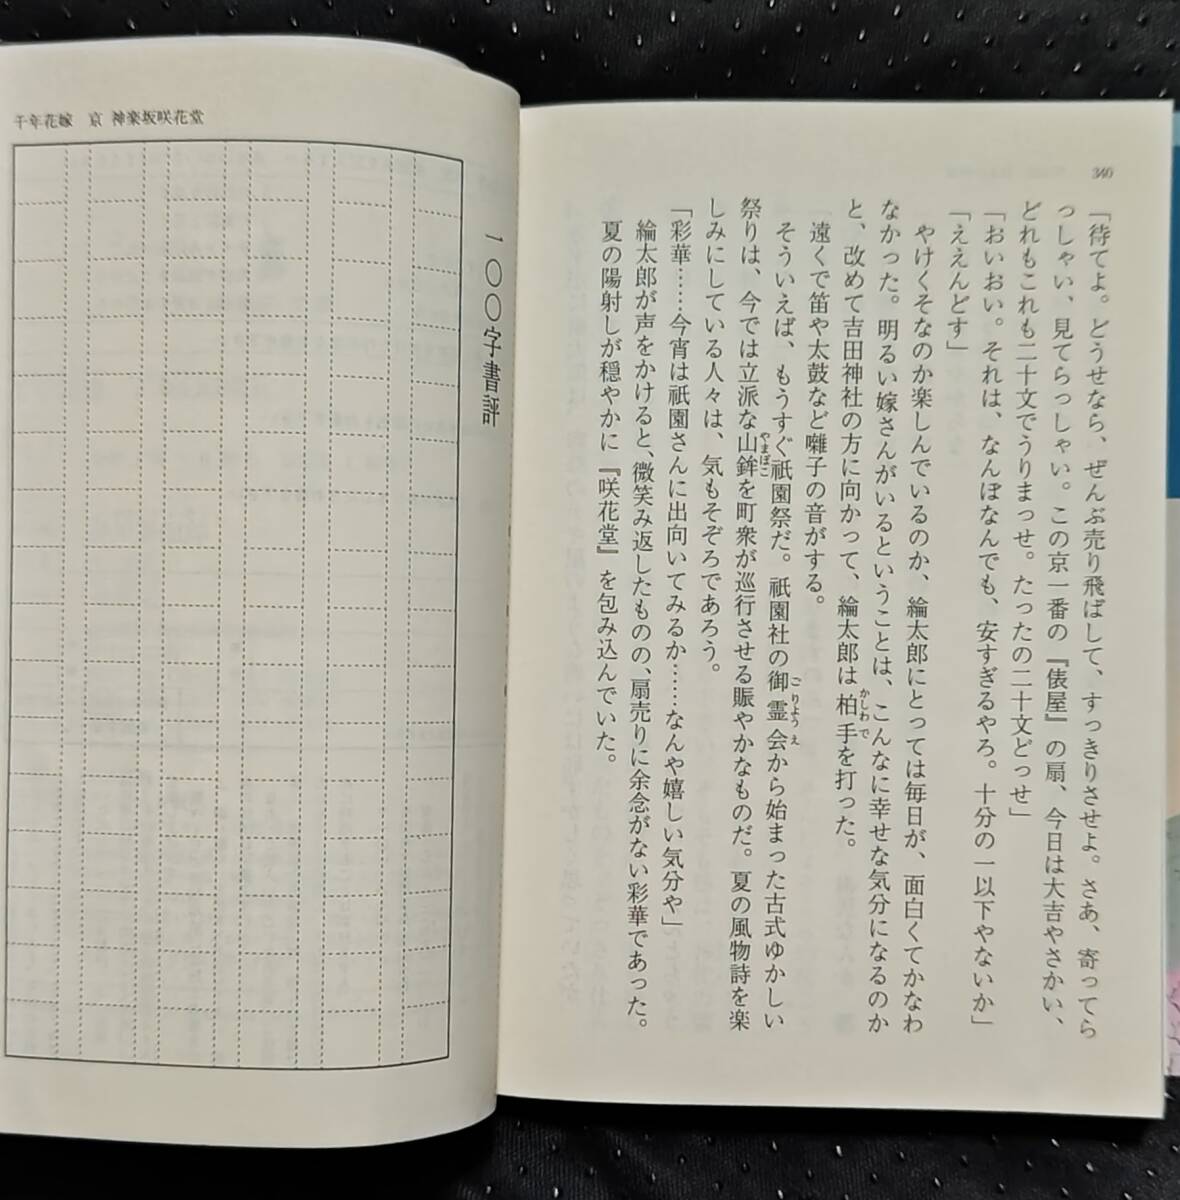 340
「待てよ。どうせなら、ぜんぶ売り飛ばして、すっきりさせよ。さあ、寄ってら
っしゃい、見てらっしゃい。この京一番の『俵屋』の扇、今日は大吉やさかい、
どれもこれも二十文でうりまっせ。たったの二十文どっせ」
「おいおい。それは、なんぼなんでも、安すぎるやろ。十分の一以下やないか」
「ええんどす」
やけくそなのか楽しんでいるのか、綸太郎にとっては毎日が、面白くてかなわ
なかった。明るい嫁さんがいるということは、こんなに幸せな気分になるのか
と、改めて吉田神社の方に向かって、綸太郎は柏手を打った。
かしわで
遠くで笛や太鼓など囃子の音がする。
そういえば、もうすぐ祇園祭だ。祇園社の御霊会から始まった古式ゆかしい
ごりょうえ
祭りは、今では立派な山鉾を町衆が巡行させる賑やかなものだ。夏の風物詩を楽
やまぼこ
しみにしている人々は、気もそぞろであろう。
「彩華……今宵は祇園さんに出向いてみるか……なんや嬉しい気分や」
綸太郎が声をかけると、微笑み返したものの、扇売りに余念がない彩華であった。
夏の陽射しが穏やかに『咲花堂』を包み込んでいた。
一〇〇字書評
千年花嫁　京 神楽坂咲花堂